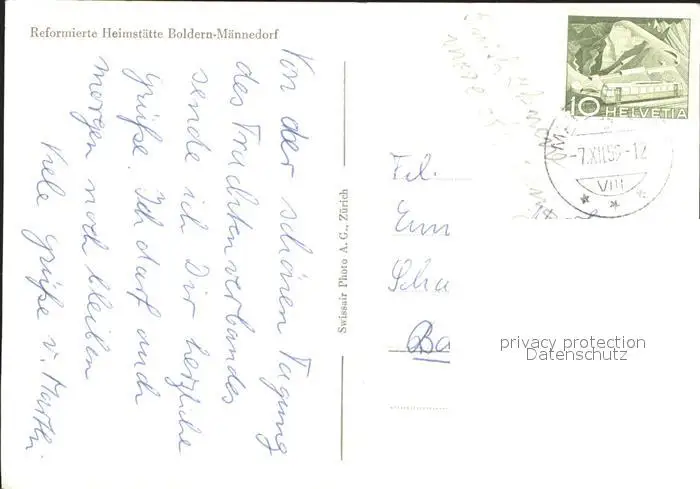 Reformierte Heimstätte Boldern-Männedorf
Von der schönen Tagung
des Trachtenverbandes
sende ich Dir herzliche
Grüße. Ich darf auch
morgen noch bleiben
Viele Grüße v. Marthi.
Swissair Photo A. G., Zürich
10 HELVETIA
-7.XII.55-12
VIII
Frl.
Emm
Scha
Ba
privacy protection
Datenschutz